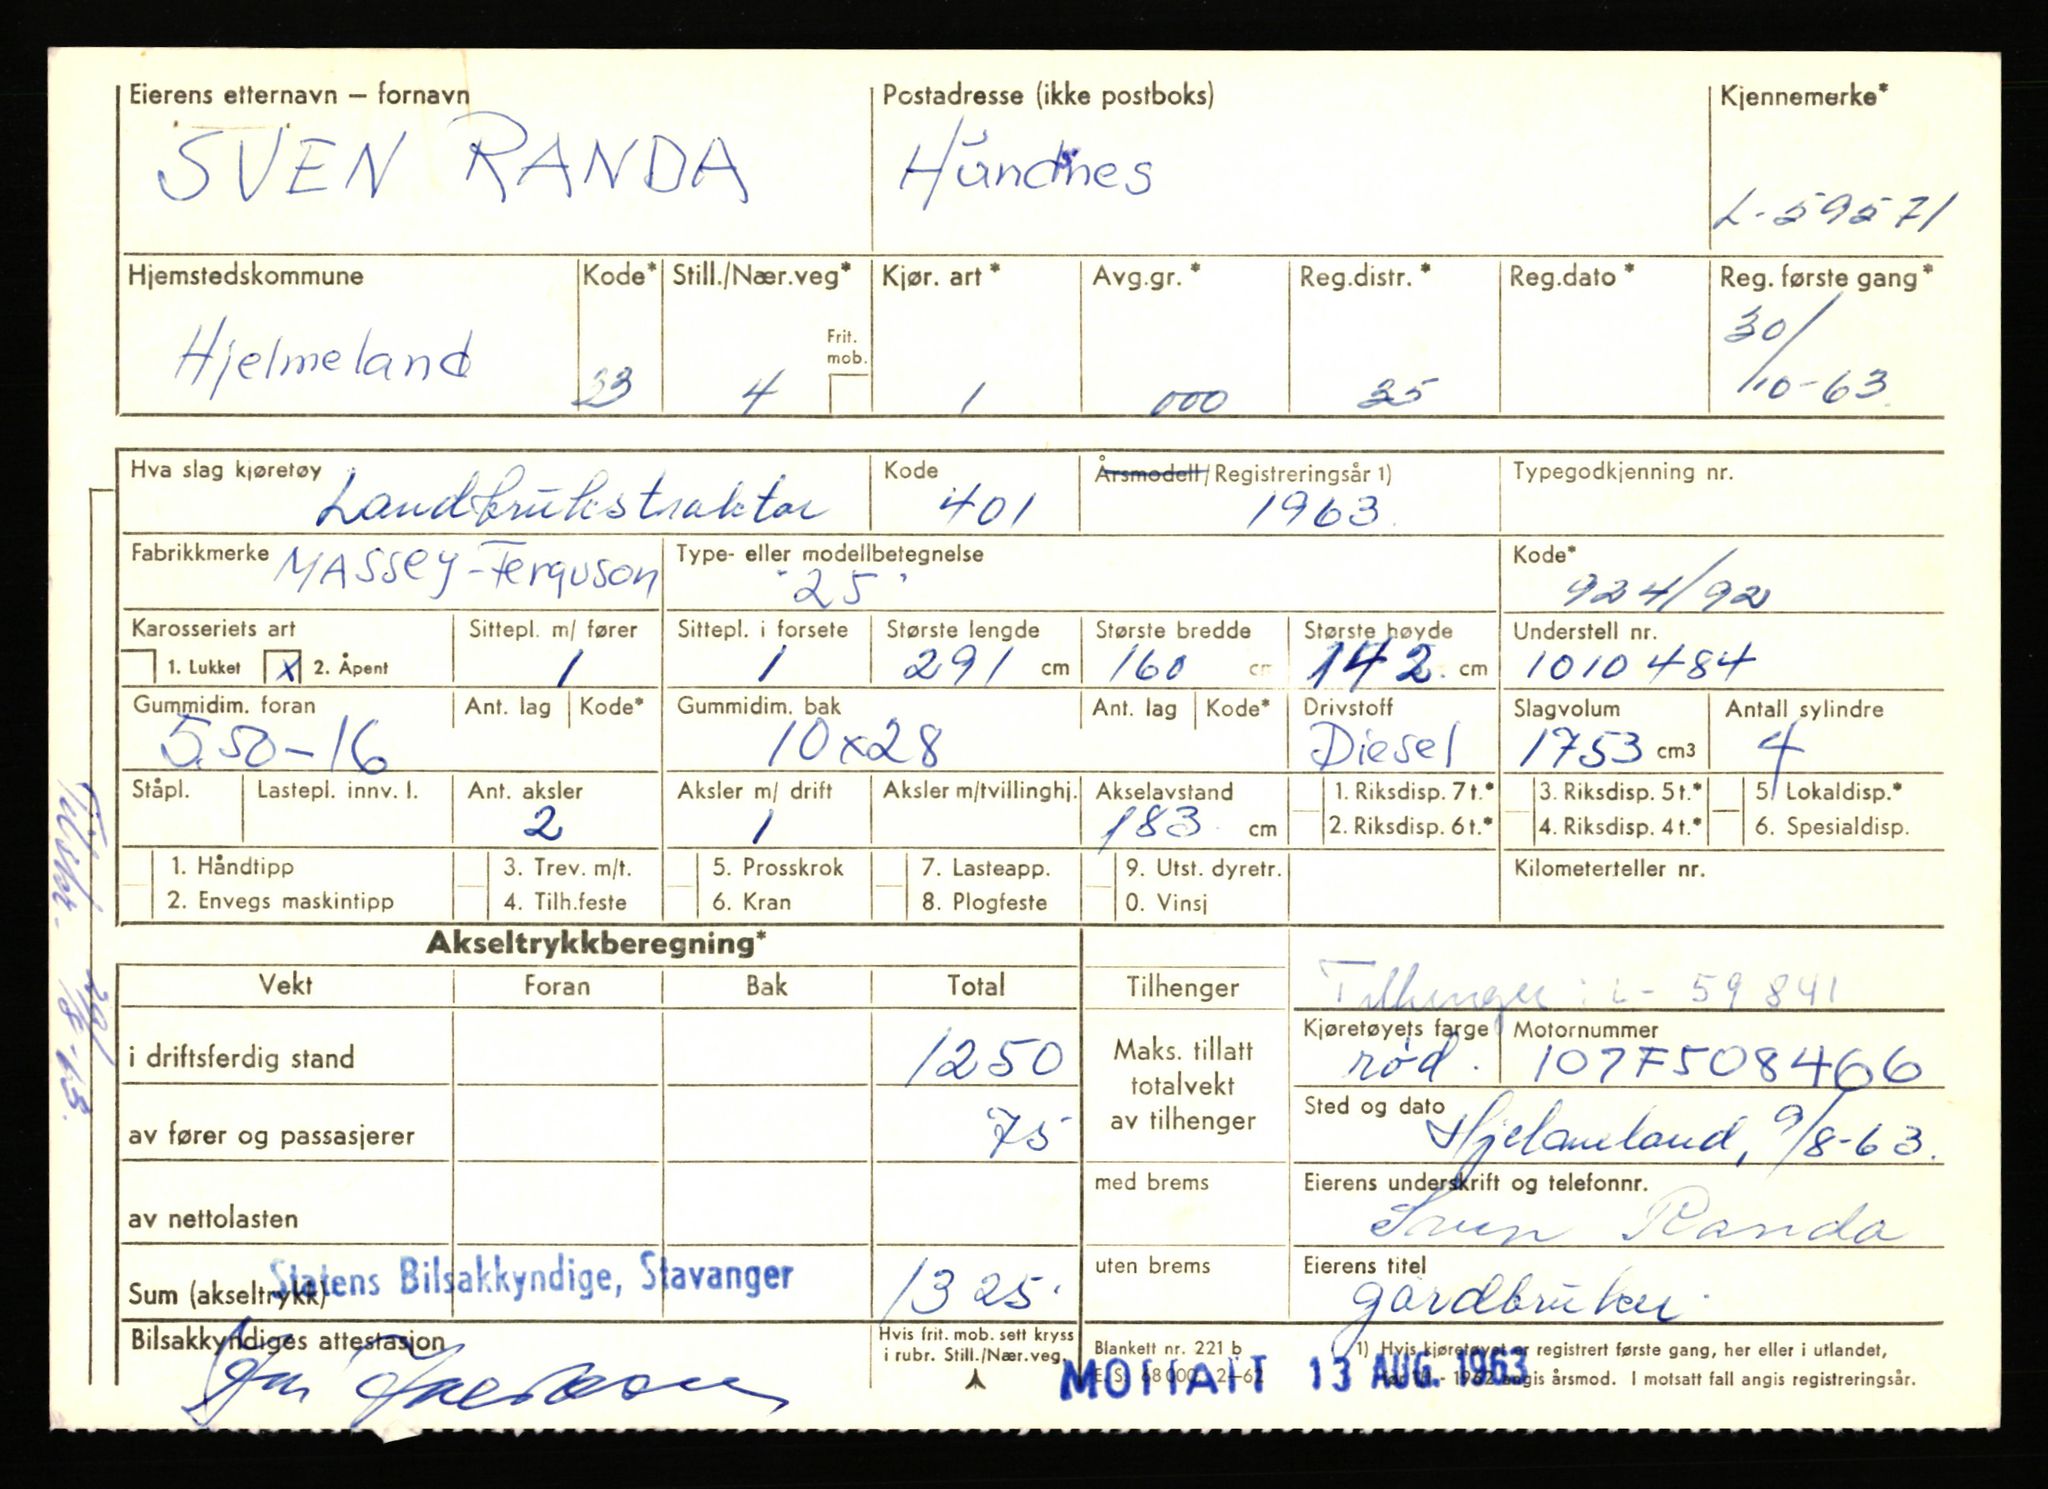 Eierens etternavn — fornavn Postadresse (ikke postboks) Kjennemerke*
SVEN RANDA Hundsnes L-59571
Hjemstedskommune Kode* Still./Nær.veg* Kjør. art* Avg.gr.* Reg.distr.* Reg.dato* Reg. første gang*
Hjelmeland 33 4 Frit. mob. 1 000 35 30/10-63
Hva slag kjøretøy Kode Årsmodell/Registreringsår 1) Typegodkjenning nr.
Landbrukstraktor 401 1963
Fabrikkmerke Type- eller modellbetegnelse Kode*
MASSEY-Ferguson "25" 924/92
Karosseriets art Sittepl. m/ fører Sittepl. i forsete Største lengde Største bredde Største høyde Understell nr.
1. Lukket x 2. Åpent 1 1 291 cm 160 cm 142 cm 1010484
Gummidim. foran Ant. lag Kode* Gummidim. bak Ant. lag Kode* Drivstoff Slagvolum Antall sylindre
5.50-16 10x28 Diesel 1753 cm3 4
Ståpl. Lastepl. innv. l. Ant. aksler Aksler m/ drift Aksler m/tvillinghj. Akselavstand 1. Riksdisp. 7 t.* 3. Riksdisp. 5 t.* 5. Lokaldisp.*
2 1 183 cm 2. Riksdisp. 6 t.* 4. Riksdisp. 4 t.* 6. Spesialdisp.
1. Håndtipp 3. Trev. m/t. 5. Prosskrok 7. Lasteapp. 9. Utst. dyretr. Kilometerteller nr.
2. Envegs maskintipp 4. Tilh.feste 6. Kran 8. Plogfeste 0. Vinsj
Akseltrykkberegning*
Vekt Foran Bak Total Tilhenger Tilhenger: L-59841
i driftsferdig stand 1250 Maks. tillatt totalvekt av tilhenger Kjøretøyets farge rød. Motornummer 107F508466
av fører og passasjerer 75 Sted og dato Hjelmeland, 9/8-63.
av nettolasten med brems Eierens underskrift og telefonnr. Sven Randa
Sum (akseltrykk) 1325 uten brems Eierens titel gårdbruker
Statens Bilsakkyndige, Stavanger
Bilsakkyndiges attestasjon Hvis frit. mob. sett kryss i rubr. Still./Nær.veg. Blankett nr. 221 b
E.S. 68 000. 2-62
1) Hvis kjøretøyet er registrert første gang, her eller i utlandet,
før 1/1 - 1962 angis årsmod. I motsatt fall angis registreringsår.
MOTTATT 13 AUG. 1963